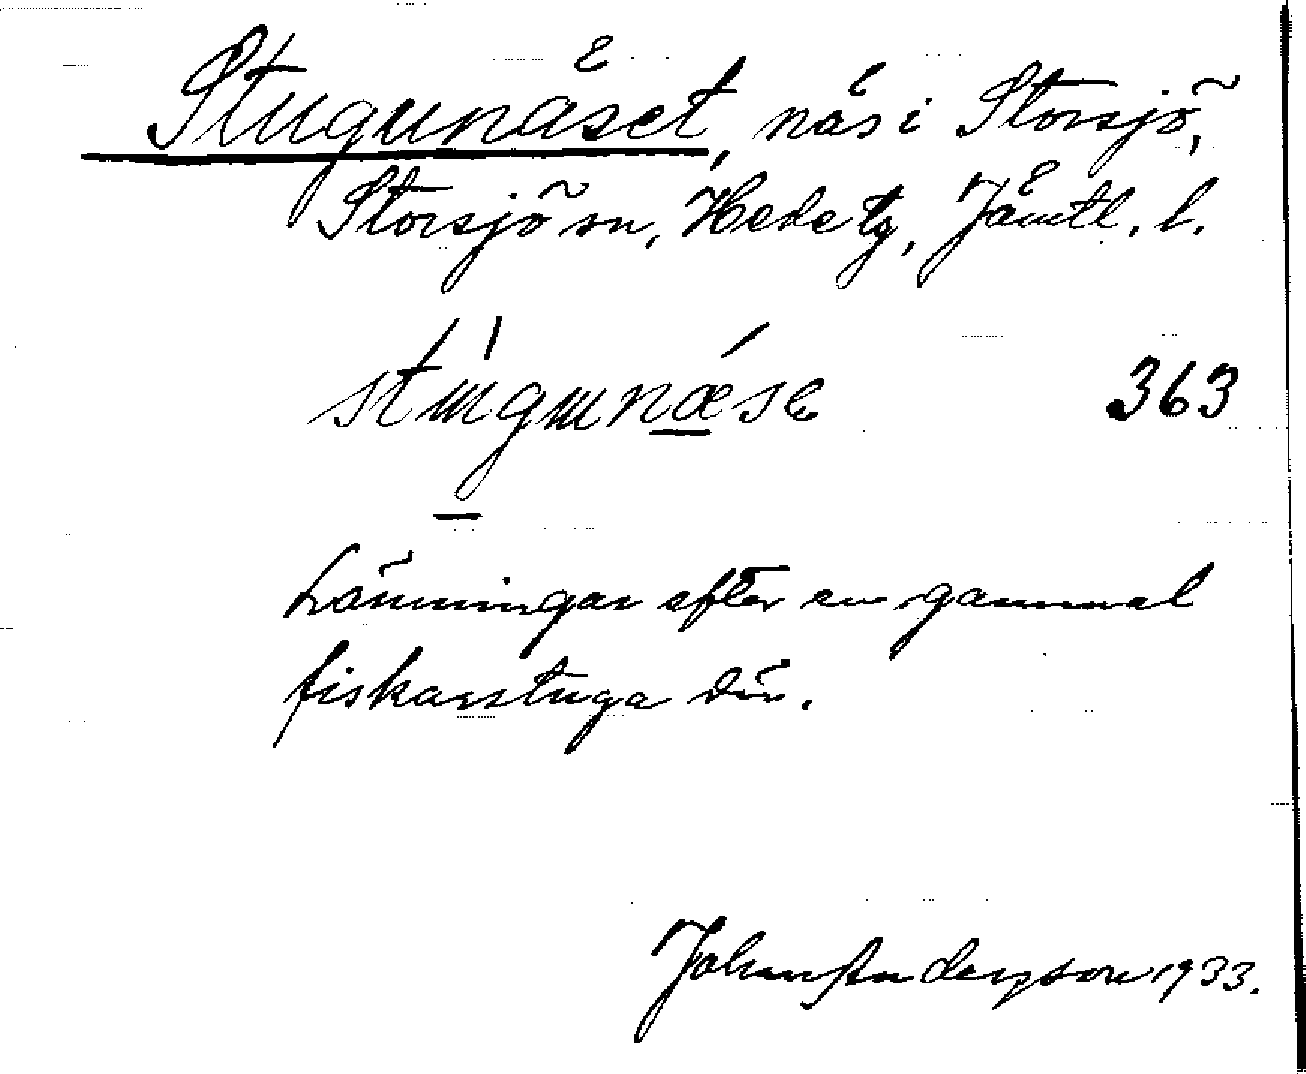 Stugunäset, näs i Storsjö,
Storsjö sn, Hede tg, Jämtl. l.
stúgunǽse 363
Lämningar efter en gammal
fiskarstuga där.
Johan Andersson 1933.